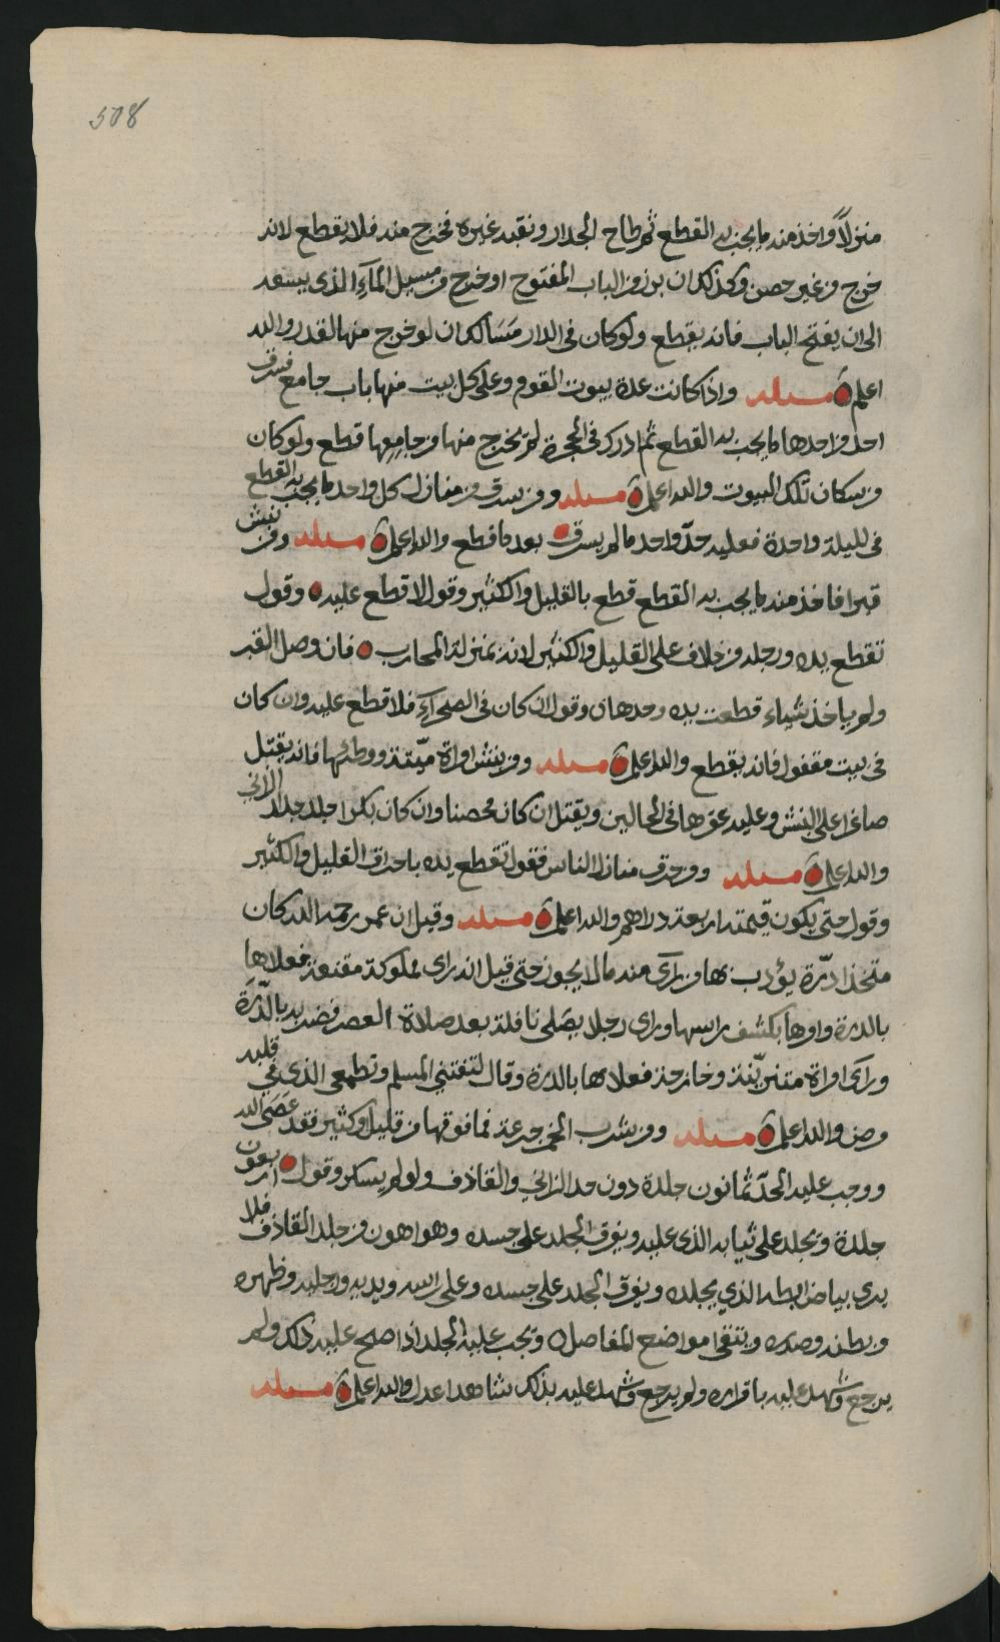 508
منزلاً واخذ منه ما يجب به القطع ثم طاح الجدار ونقبه غيره فخرج منه فلا يقطع لانه
خرج من غير حصن وكذلك ان برز من الباب المفتوح او خرج من مسيل الماء الذي يسعه
الى ان يفتح الباب فانه يقطع ولو كان في الدار مسالك ان لو خرج منها لقدر والله
اعلم مسئله واذا كانت عدة بيوت القوم وعلى كل بيت منها باب جامع فسرق
احد من احدها ما يجب به القطع ثم ادرك في الحجرة لم يخرج منها من جامعها قطع ولو كان
من سكان تلك البيوت والله اعلم مسئله ومن سرق من منازل كل واحد ما يجب به القطع
في ليلة واحدة فعليه حدّ واحد ما لم يسرق بعد ما قطع والله اعلم مسئله ومن نبش
قبرا فاخذ منه ما يجب به القطع قطع بالقليل والكثير وقول لا قطع عليه وقول
تقطع يده ورجله من خلاف على القليل والكثير لانه بمنزلة المحارب فان وصل القبر
ولم ياخذ شياء قطعت يده وحدها وقول ان كان في الصحراء فلا قطع عليه وان كان
في بيت مقفول فانه يقطع والله اعلم مسئله ومن نبش امراة ميّتة ووطئها فانه يقتل
صاغرا على النبش وعليه عقرها في الحالين ويقتل ان كان محصنا وان كان بكرا جلد جلد الزاني
والله اعلم مسئله ومن حرق منازل الناس فقول تقطع يده باحراق القليل والكثير
وقول حتى يكون قيمته اربعة دراهم والله اعلم مسئله وقيل ان عمر رحمه الله كان
متخذا درّة يؤدب بها من راى منه ما لا يجوز حتى قيل انه راى مملوكة مقنعة فعلاها
بالدرة وامرها بكشف راسها وراى رجلا يصلي نافلة بعد صلاة العصر فضربه بالدّرة
وراى امراة متزيّنة وخارجة فعلاها بالدرة وقال لتفتني المسلم وتطمعي الذي في قلبه
مرض والله اعلم مسئله ومن شرب الخمر جرعة فما فوقها من قليل او كثير فقد عصى الله
ووجب عليه الحدّ ثمانون جلدة دون حد الزاني والقاذف ولو لم يسكر وقول اربعون
جلدة ويجلد على ثيابه الذي عليه ويفرق الجلد على جسده وهو اهون من جلد القاذف فلا
يرى بياض ابطه الذي يجلده ويفرق الجلد على جسده وعلى راسه ويديه ورجليه وظهره
وبطنه وصدره ويتقى مواضع المفاصل ويجب عليه الجلد اذا صح عليه ذلك ولم
يرجع وشهد عليه باقراره ولم يرجع وشهد عليه بذلك شاهدا عدل والله اعلم مسئله